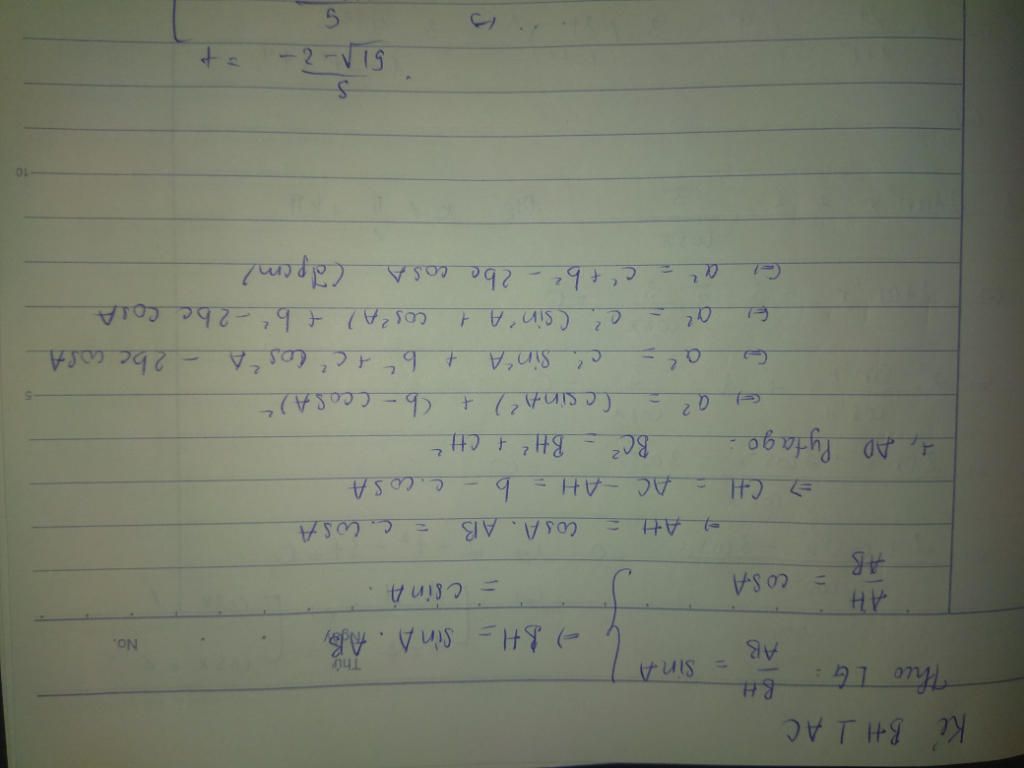 Kẻ BH ⊥ AC
Theo LG: BH/AB = sinA ⇒ BH = sinA. AB
AH/AB = cosA = csinA.
⇒ AH = cosA. AB = c. cosA
⇒ CH = AC - AH = b - c. cosA
+, AD Pytago: BC² = BH² + CH²
⇔ a² = (csinA²) + (b - ccosA)²
⇔ a² = c². sin²A + b² + c² cos²A - 2bc cosA
⇔ a² = c². (sin²A + cos²A) + b² - 2bc cosA
⇔ a² = c² + b² - 2bc cosA (đpcm)
Thứ
Ngày
No.
5
10